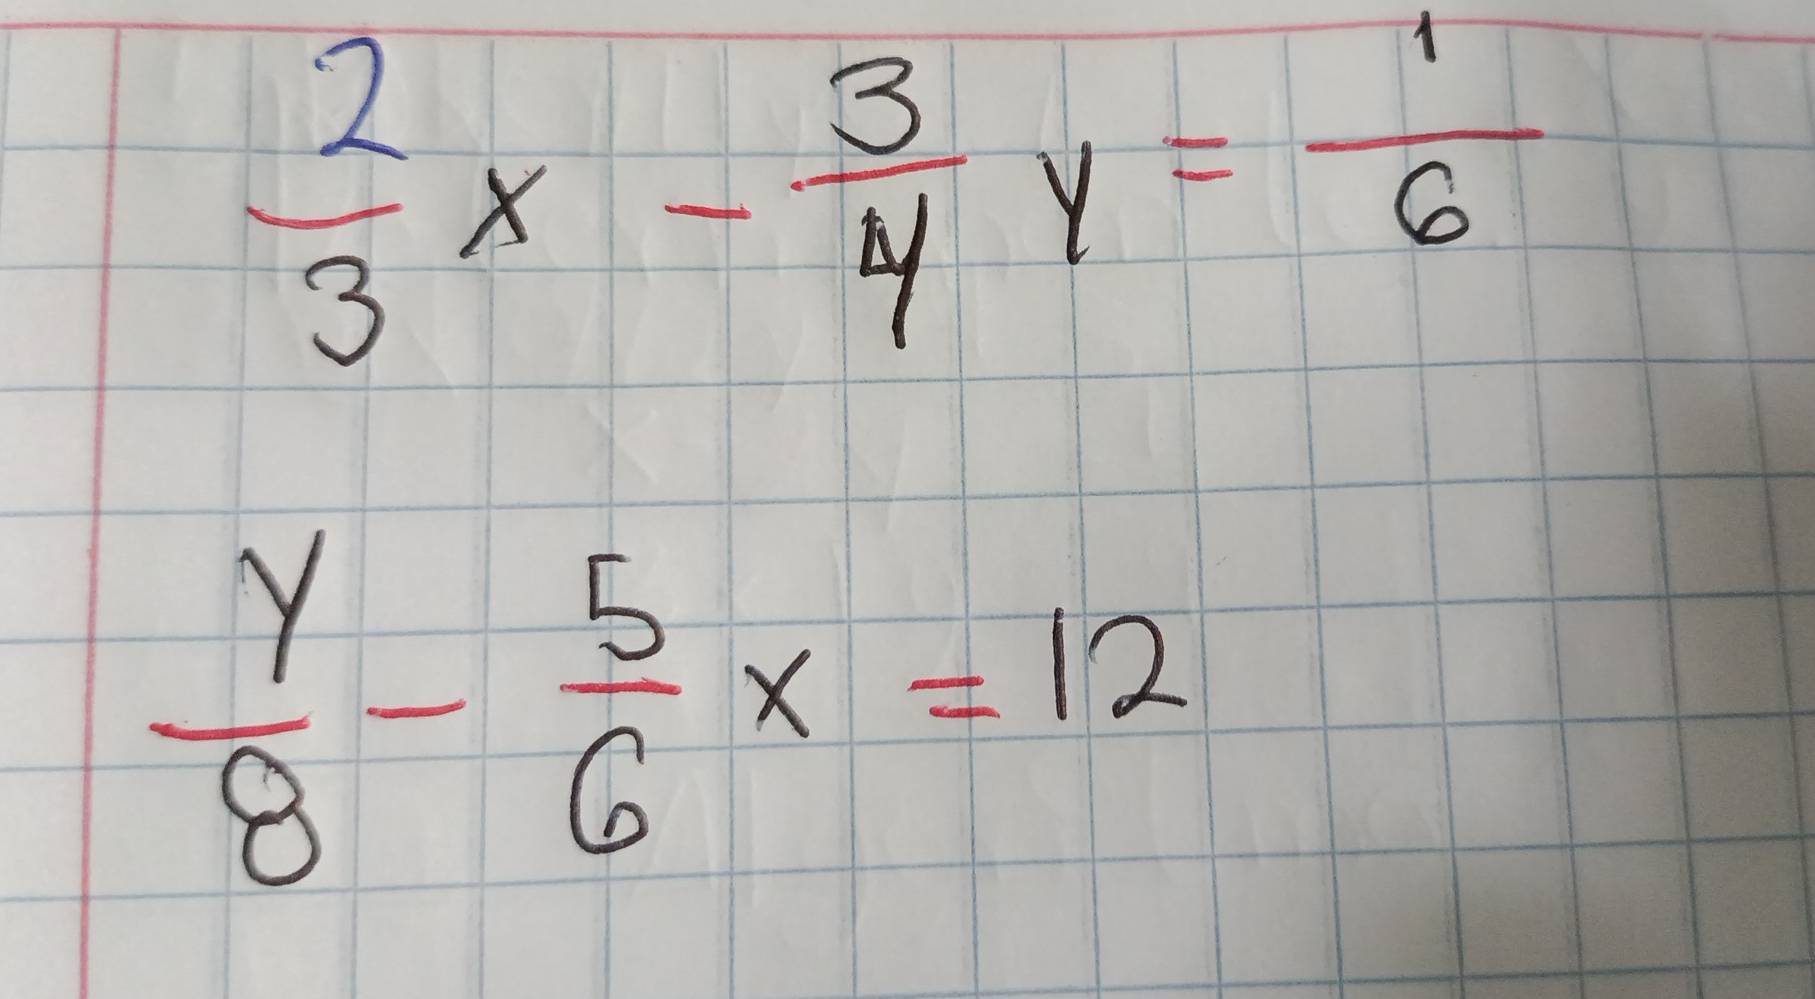 2/3 x - 3/4 y = 1/6
y/8 - 5/6 x = 12